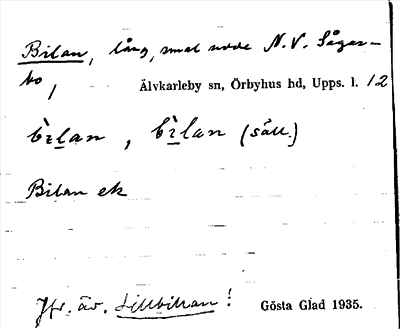 Bilan, lång, smal udde N.V. Sågar-
bo, Älvkarleby sn, Örbyhus hd, Upps. l. 12
bìlan, bìlan (säll.)
Bilan ek
Jfr. äv. Lillbillan!
Gösta Glad 1935.